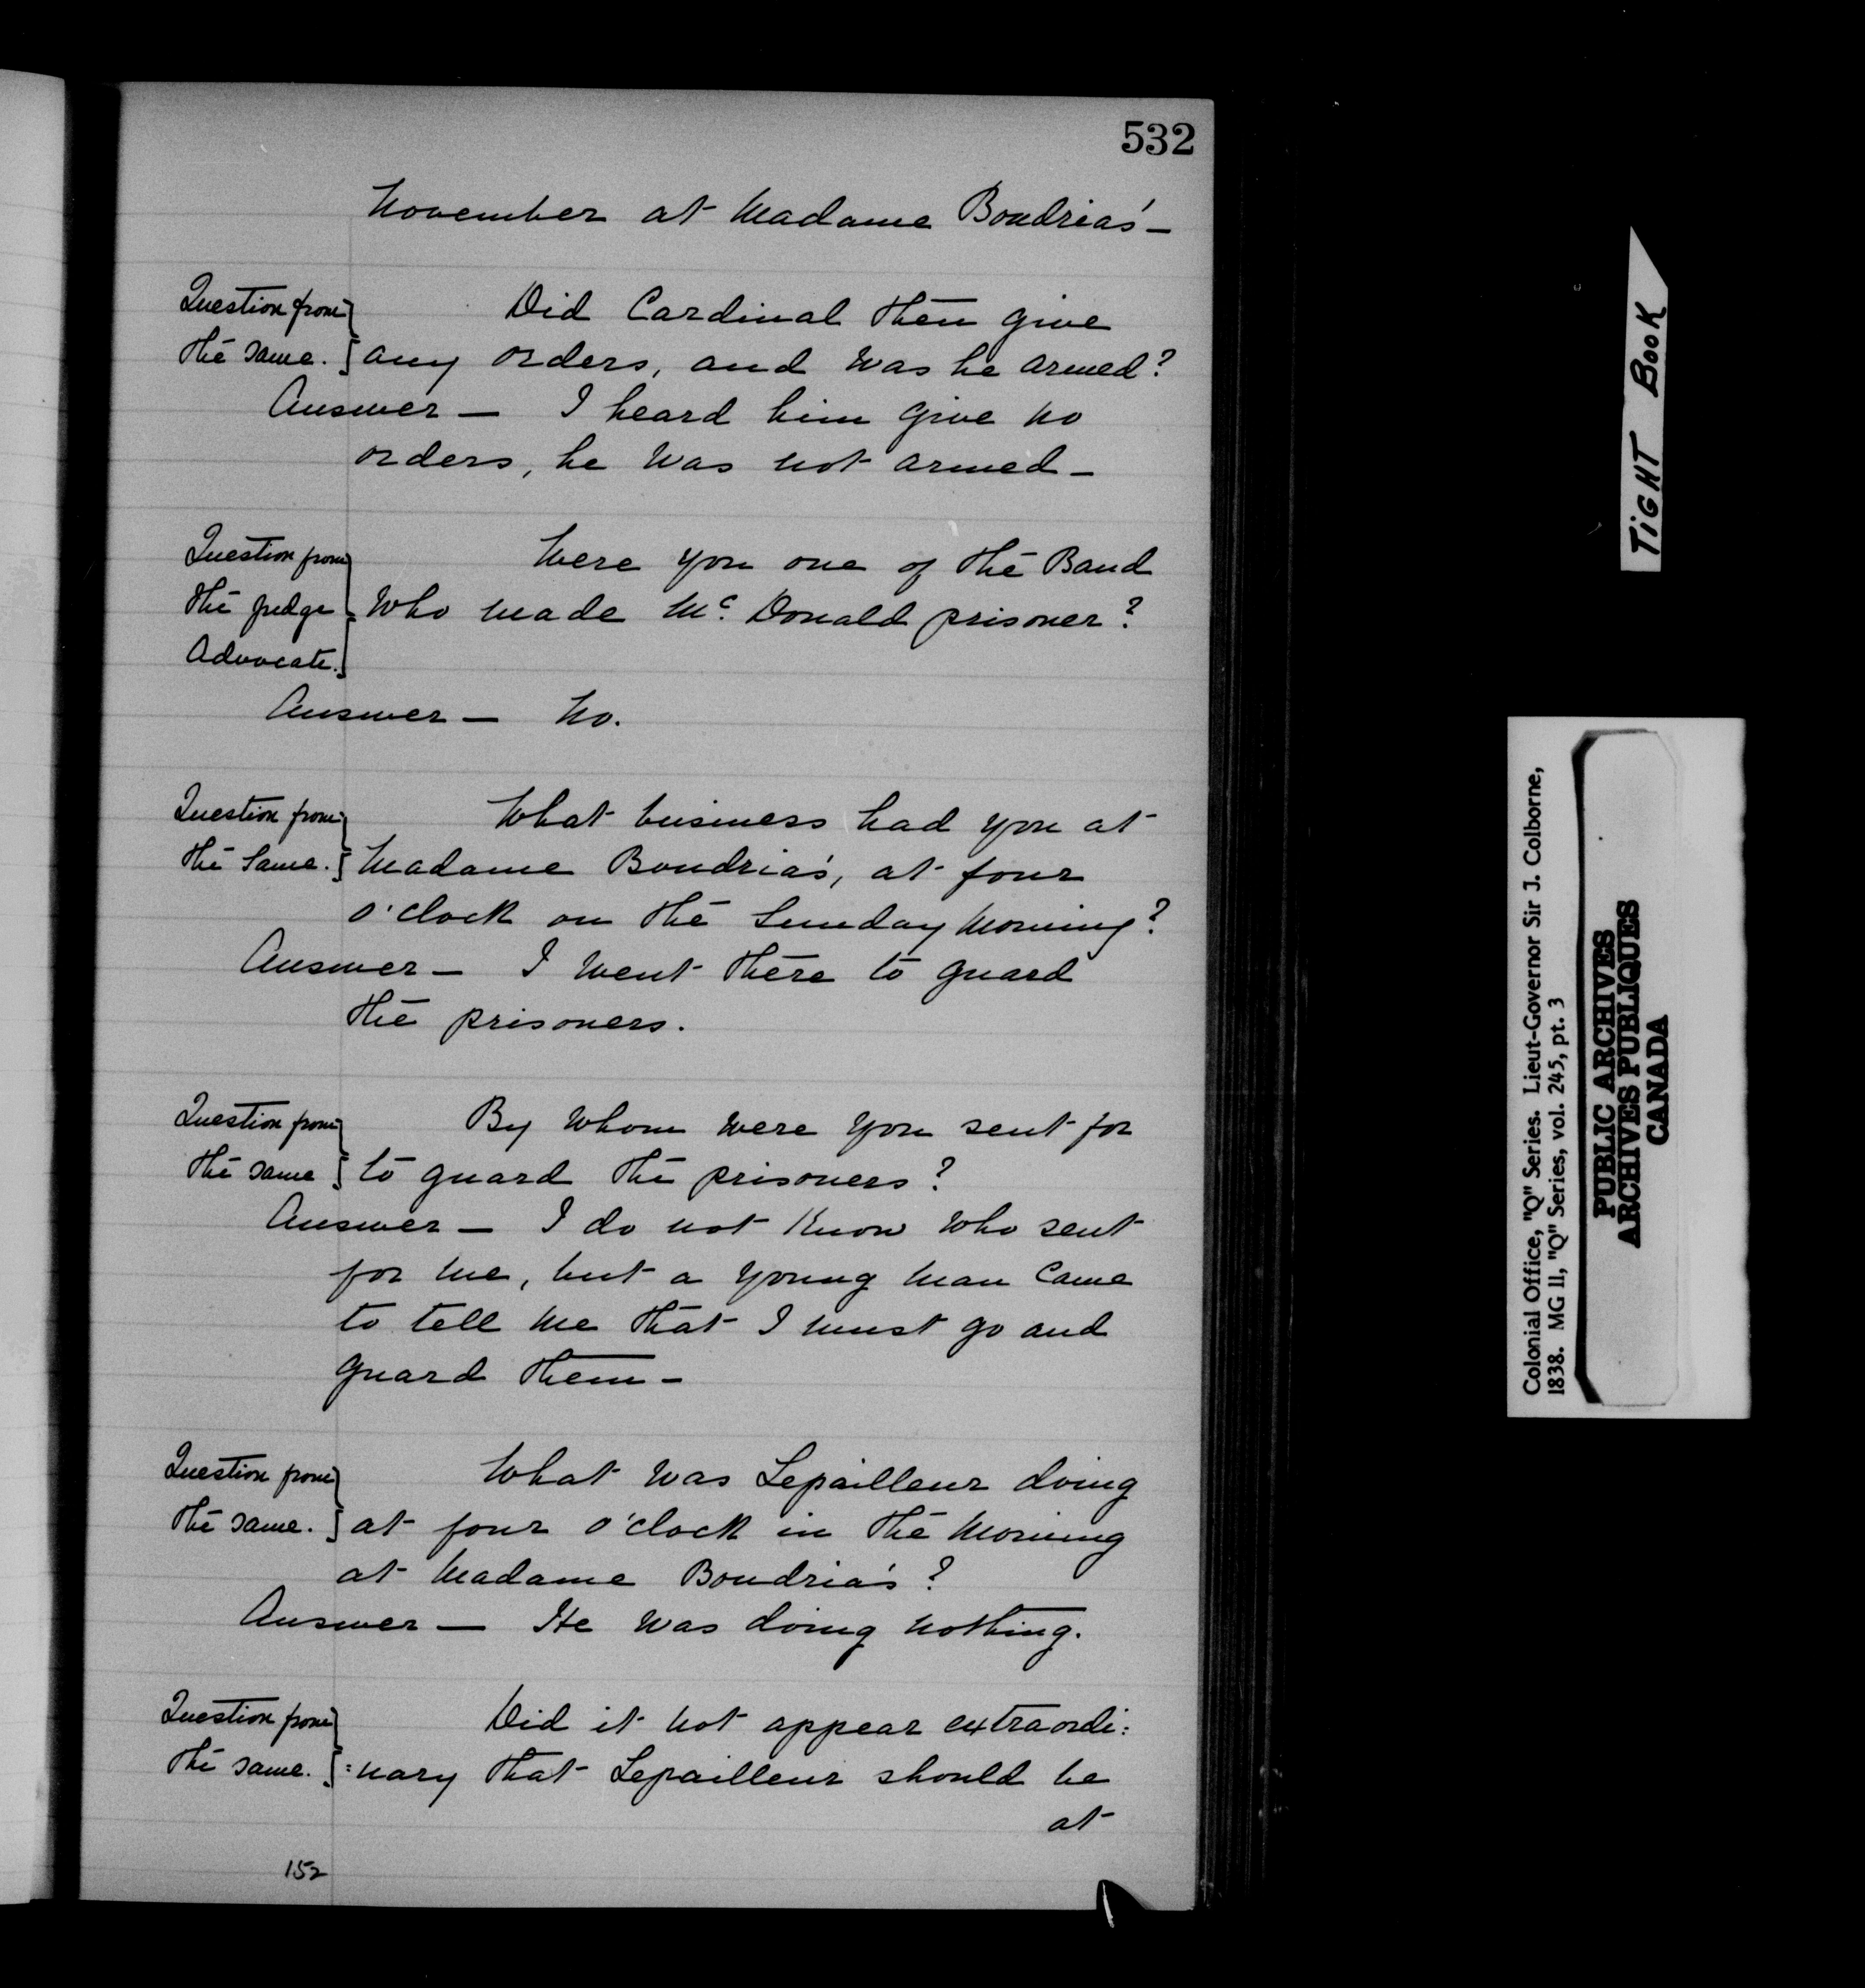 532
November at Madame Boudria's —
Question from } Did Cardinal then give
the same. } any orders, and was he armed?
Answer — I heard him give no
orders, he was not armed —
Question from } Were you one of the Band
the judge } who made Mc. Donald prisoner?
Advocate. }
Answer — No.
Question from } What business had you at
the same. } Madame Boudria's, at four
o'clock on the Sunday morning?
Answer — I went there to guard
the prisoners.
Question from } By whom were you sent for
the same } to guard the prisoners?
Answer — I do not know who sent
for me, but a young man came
to tell me that I must go and
guard them —
Question from } What was Lepailleur doing
the same. } at four o'clock in the morning
at Madame Boudria's?
Answer — He was doing nothing.
Question from } Did it not appear extraordi:
the same. } :nary that Lepailleur should be
at
152
TIGHT BOOK
Colonial Office, "Q" Series. Lieut-Governor Sir J. Colborne,
1838. MG 11, "Q" Series, vol. 245, pt. 3
PUBLIC ARCHIVES
ARCHIVES PUBLIQUES
CANADA